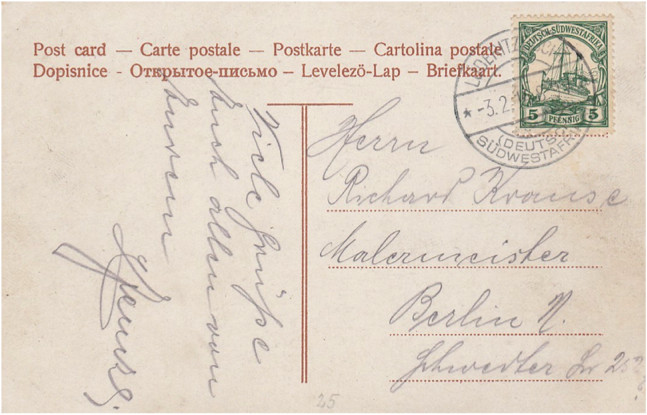 Post card — Carte postale — Postkarte — Cartolina postale
Dopisnice - Открытое-письмо – Levelező-Lap – Briefkaart.
DEUTSCH-SÜDWESTAFRIKA
5 PFENNIG 5
* -3.2.
(DEUTSCH
SÜDWESTAFR
Viele Grüße
Euch allen von
Eurem
Herrn
Richard Krause
Malermeister
Berlin N.
Schwedter Str 25
25